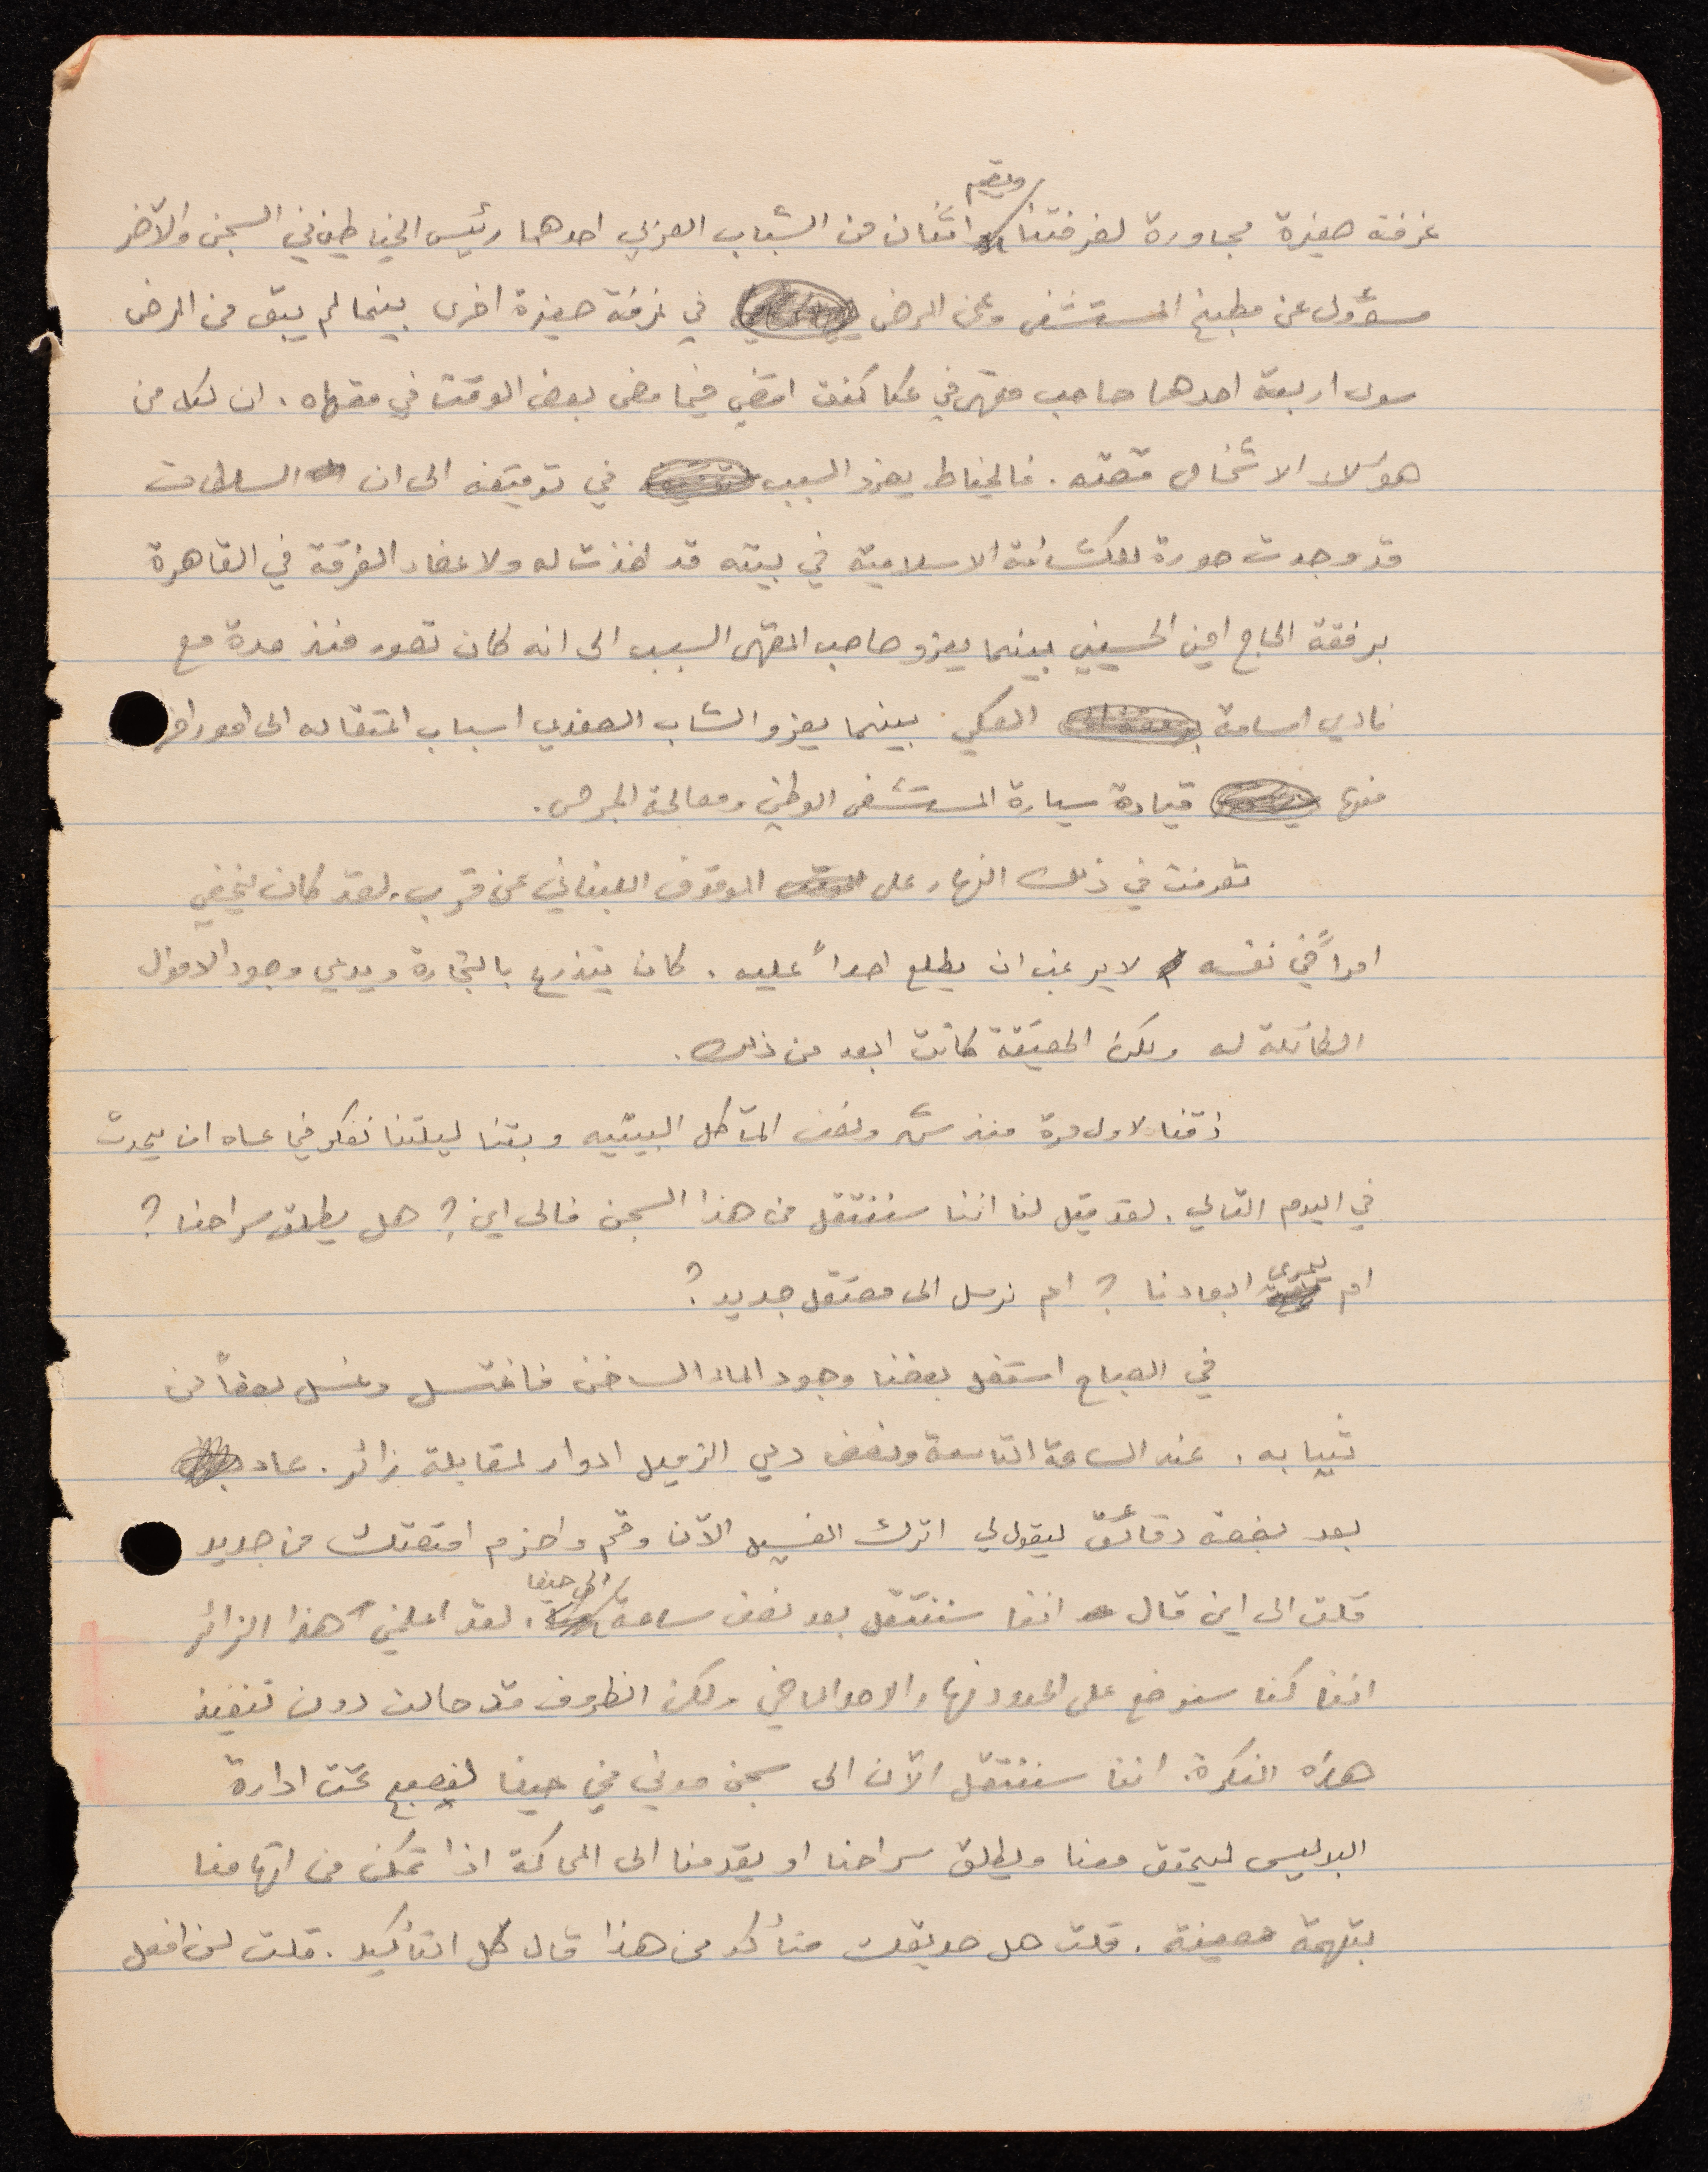 غرفة صغيرة مجاورة لغرفتنا ويقيم اثنان من الشباب العربي احدهما رئيس الخياطين في السجن والآخر
مسؤول عن مطبخ المستشفى وعن المرضى في غرفة صغيرة اخرى بينما لم يبق من المرضى
سوى اربعة احدهما صاحب مقهى في عكا كنت امضي فيما مضى بعض الوقت في مقهاه. ان لكل من
هؤلاء الاشخاص قصته. فالخياط يعزو السبب في توقيفه الى ان السلطات
قد وجدت صورة للكشافة الاسلامية في بيته قد اخذت له ولاعضاء الفرقة في القاهرة
برفقة الحاج امين الحسيني بينما يعزو صاحب المقهى السبب الى انه كان تصور منذ مدة مع
نادي اسامة العكي. بينما يعزو الشاب الصفدي اسباب اعتقاله الى امور اخرى
منها قيادة سيارة المستشفى الوطني ومعالجة الجرحى.
تعرفت في ذلك النهار على الموقوف اللبناني عن قرب. لقد كان يخفي
امراً في نفسه لا يرغب ان يطلع احداً عليه. كان يتذرع بالتجارة ويدعي وجود الاموال
الطائلة له ولكن الحقيقة كانت ابعد من ذلك.
ذقنا لاول مرة منذ شهر ونصف المآكل البيتيه وبتنا ليلتنا نفكر فيما عساه ان يحدث
في اليوم التالي. لقد قيل لنا اننا سننتقل من هذا السجن فالى اين؟ هل يطلق سراحنا؟
ام يجري ابعادنا؟ ام نرسل الى معتقل جديد؟
في الصباح استغل بعضنا وجود الماء الساخن فاغتسل وغسل بعضاً من
ثيابه. عند الساعة التاسعة ونصف دعي الزميل ادوار لمقابلة زائر. عاد
بعد بضعة دقائق ليقول لي اترك الغسيل الآن وقم واحزم امتعتك من جديد
قلت الى اين قال اننا سننتقل بعد نصف ساعة الى حيفا. لقد اعلمني هذا الزائر
اننا كنا سنوضع على الحدود نهار الاحد الماضي ولكن الظروف قد حالت دون تنفيذ
هذه الفكرة. اننا سننتقل الآن الى سجن مدني في حيفا لنصبح تحت ادارة
البوليس ليحقق معنا ويطلق سراحنا او يقدمنا الى المحاكمة اذا تمكن من اتهامنا
بتهمة معينة. قلت هل صديقك متأكد من هذا قال كل التأكيد. قلت لن افعل